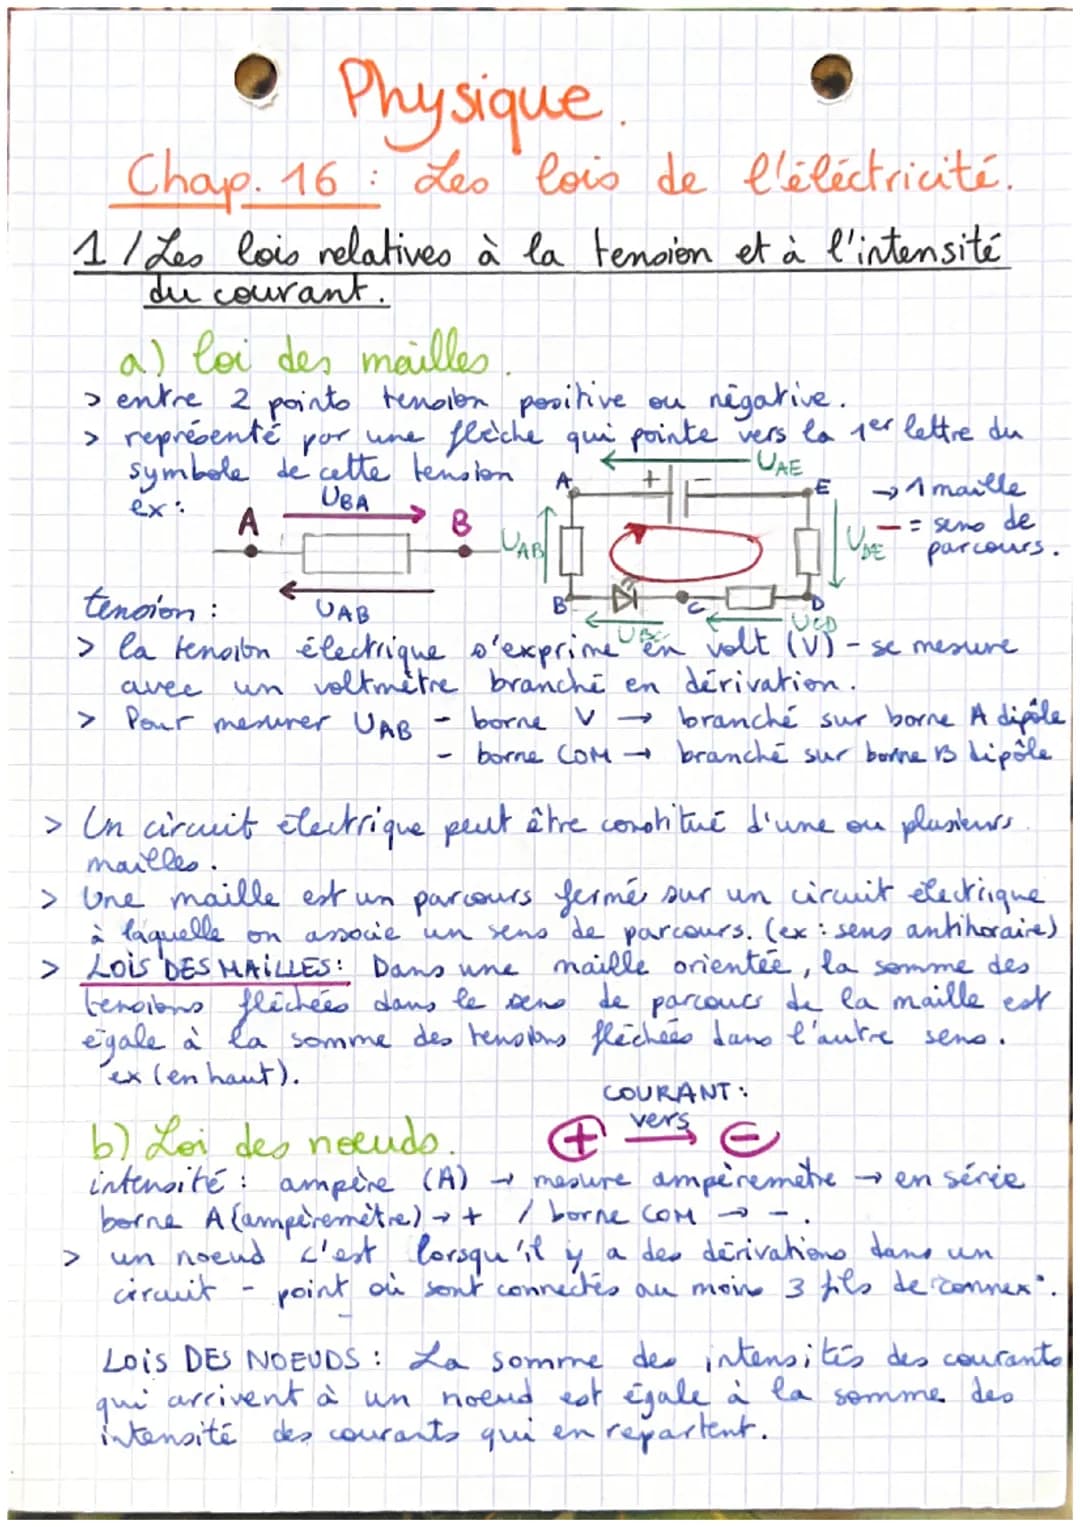 Physique.
Chap. 16 : Les lois de l'éléctricité.
1 / Les lois relatives à la tension et à l'intensité
du courant.
a) loi des mailles.
> entre 2 points tension positive ou négative.
> représenté par une flèche qui pointe vers la 1er lettre du
symbole de cette tension
ex :
UBA
A
B
UAB
UAE
A
+
-
E
UAB
UDE
B
C
D
UBC
UCD
→ 1 maille
- = sens de
parcours.
tension :
> la tension électrique s'exprime en volt (V) - se mesure
avec un voltmètre branché en dérivation.
> Pour mesurer UAB - borne V → branché sur borne A dipôle
- borne COM → branché sur borne B dipôle
> Un circuit électrique peut être constitué d'une ou plusieurs
mailles.
> Une maille est un parcours fermé sur un circuit électrique
à laquelle on associe un sens de parcours. (ex : sens antihoraire)
> LOIS DES MAILLES : Dans une maille orientée, la somme des
tensions fléchées dans le sens de parcours de la maille est
égale à la somme des tensions fléchées dans l'autre sens.
ex (en haut).
COURANT :
b) Loi des nœuds.
+ vers -
intensité : ampère (A) → mesure ampèremètre → en série
borne A (ampèremètre) → + / borne COM → -.
> un noeud c'est lorsqu'il y a des dérivations dans un
circuit - point où sont connectés au moins 3 fils de connex°.
LOIS DES NOEUDS : La somme des intensités des courants
qui arrivent à un noeud est égale à la somme des
intensité des courants qui en repartent.